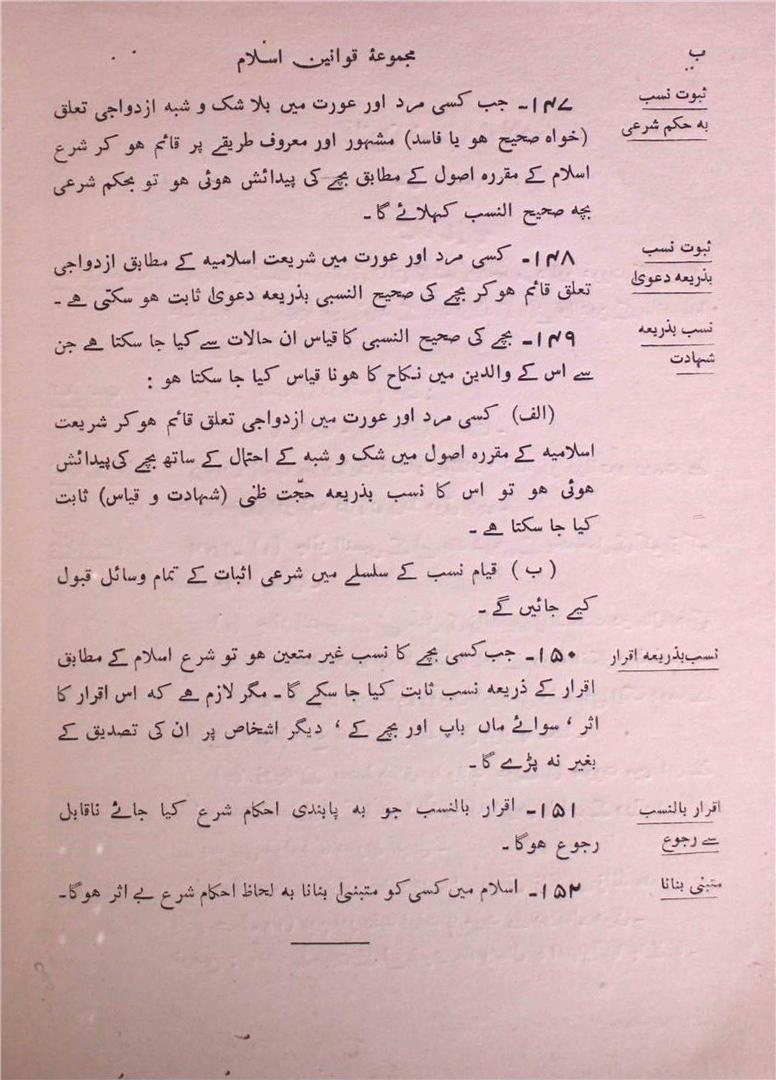 ب
مجموعۂ قوانین اسلام
ثبوت نسب
بہ حکم شرعی
۱۴۷۔ جب کسی مرد اور عورت میں بلا شک و شبہ ازدواجی تعلق
(خواہ صحیح ہو یا فاسد) مشہور اور معروف طریقے پر قائم ہو کر شرع
اسلام کے مقررہ اصول کے مطابق بچے کی پیدائش ہوئی ہو تو بحکم شرعی
بچہ صحیح النسب کہلائے گا۔
ثبوت نسب
بذریعہ دعویٰ
۱۴۸۔ کسی مرد اور عورت میں شریعت اسلامیہ کے مطابق ازدواجی
تعلق قائم ہوکر بچے کی صحیح النسبی بذریعہ دعویٰ ثابت ہو سکتی ہے۔
نسب بذریعہ
شہادت
۱۴۹۔ بچے کی صحیح النسبی کا قیاس ان حالات سے کیا جا سکتا ہے جن
سے اس کے والدین میں نکاح کا ہونا قیاس کیا جا سکتا ہو :
(الف) کسی مرد اور عورت میں ازدواجی تعلق قائم ہوکر شریعت
اسلامیہ کے مقررہ اصول میں شک و شبہ کے احتمال کے ساتھ بچے کی پیدائش
ہوئی ہو تو اس کا نسب بذریعہ حجّت ظنی (شہادت و قیاس) ثابت
کیا جا سکتا ہے۔
(ب) قیام نسب کے سلسلے میں شرعی اثبات کے تمام وسائل قبول
کیے جائیں گے۔
نسب بذریعہ اقرار
۱۵۰۔ جب کسی بچے کا نسب غیر متعین ہو تو شرع اسلام کے مطابق
اقرار کے ذریعہ نسب ثابت کیا جا سکے گا۔ مگر لازم ہے کہ اس اقرار کا
اثر ، سوائے ماں باپ اور بچے کے ، دیگر اشخاص پر ان کی تصدیق کے
بغیر نہ پڑے گا۔
اقرار بالنسب
سے رجوع
۱۵۱۔ اقرار بالنسب جو بہ پابندی احکام شرع کیا جائے ناقابل
رجوع ہوگا۔
متبنی بنانا
۱۵۲۔ اسلام میں کسی کو متبنیٰ بنانا بہ لحاظ احکام شرع بے اثر ہوگا۔